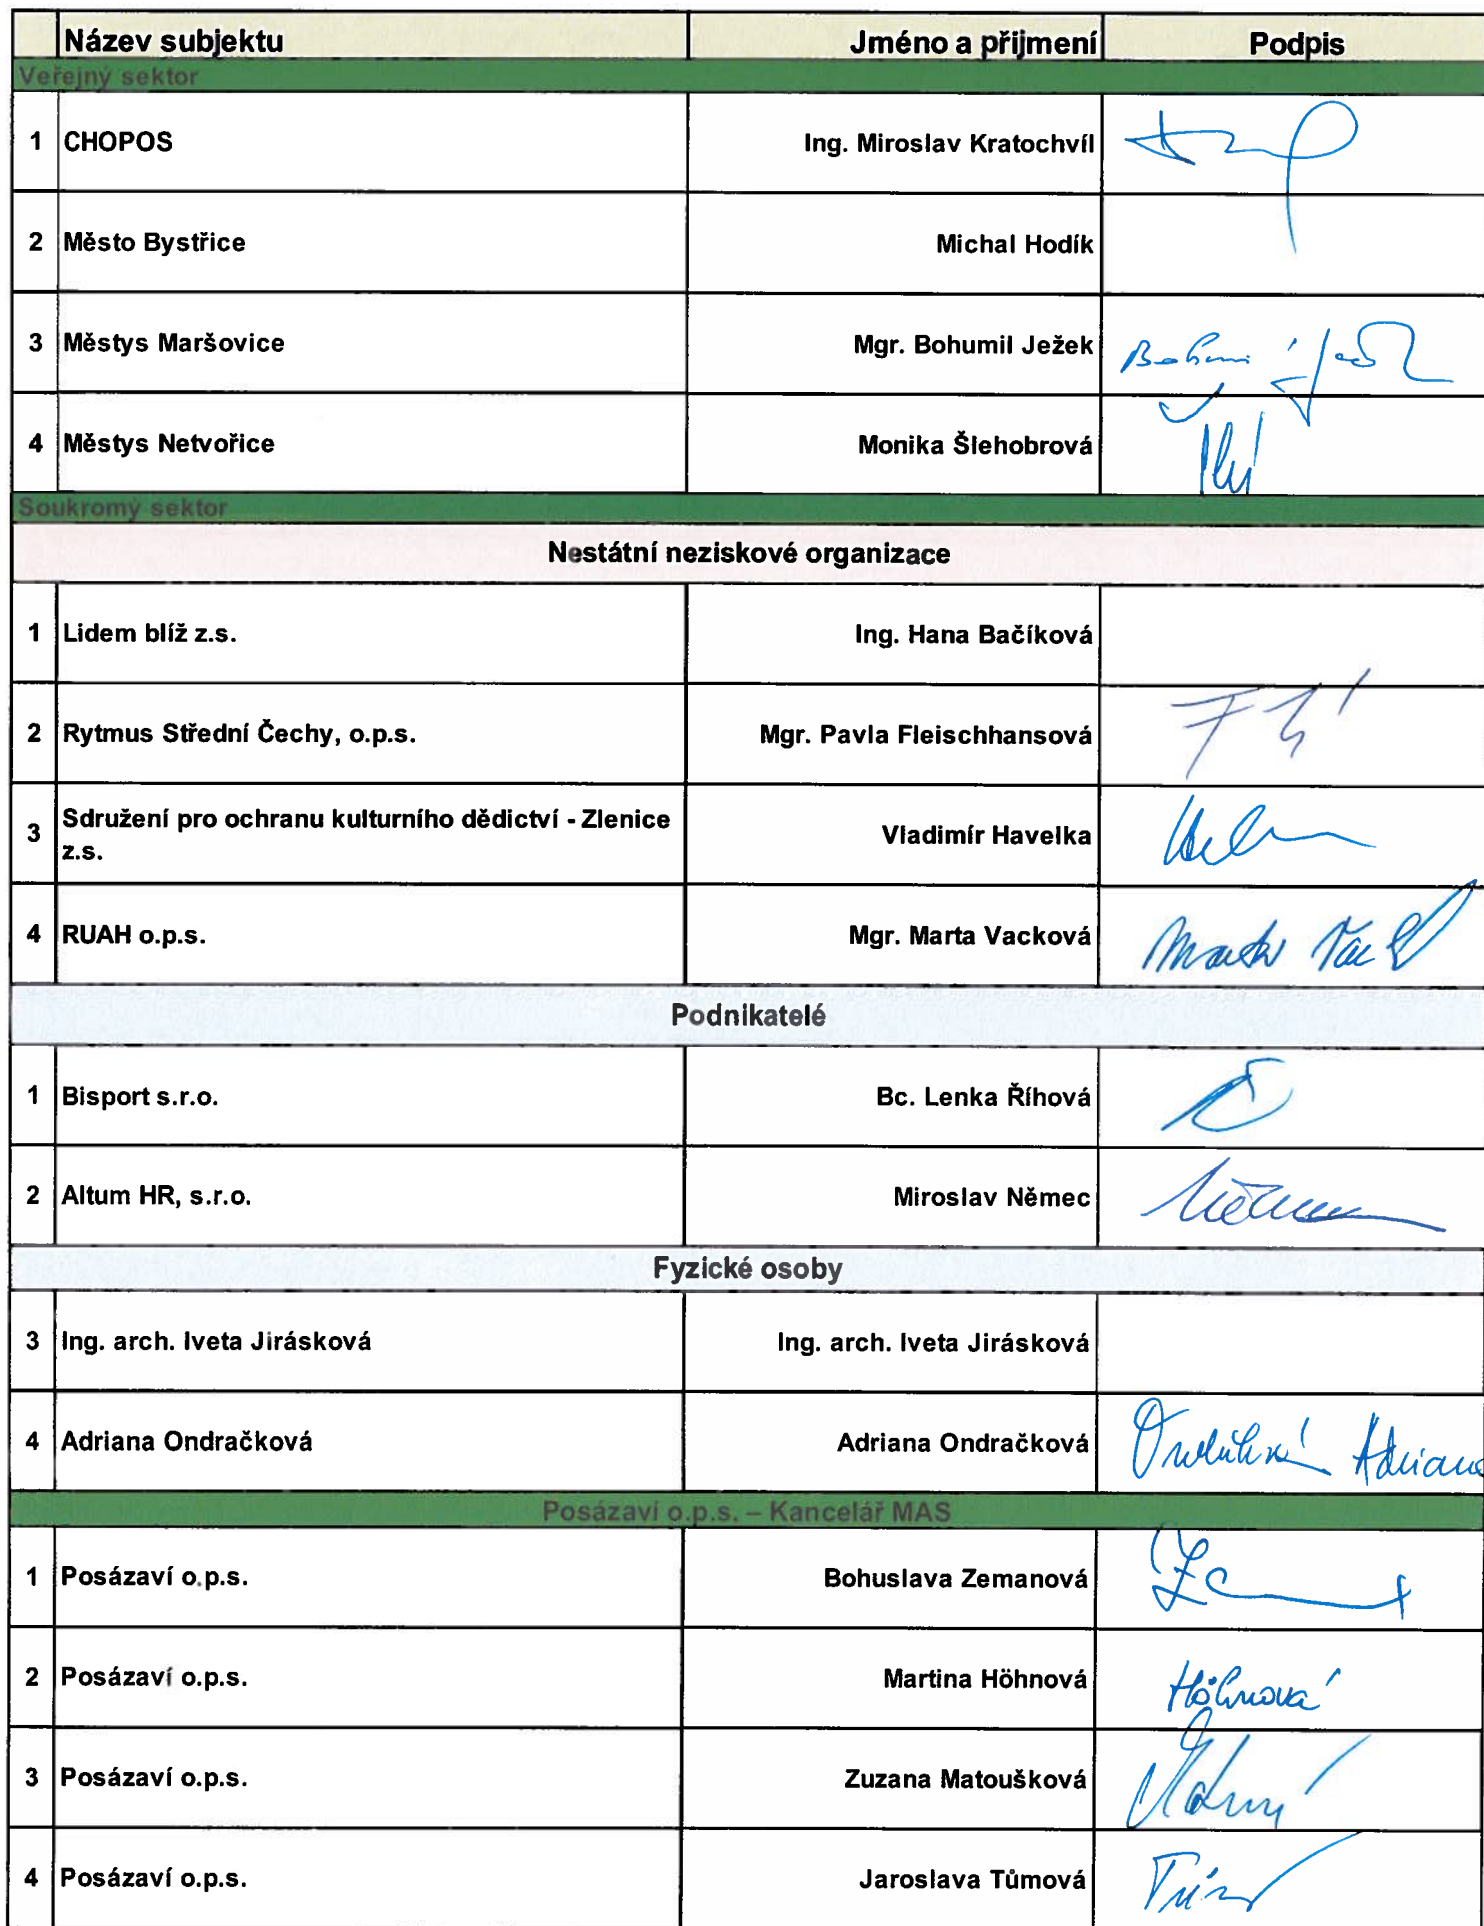 Název subjektu Jméno a přijmení Podpis
Veřejný sektor
1 CHOPOS Ing. Miroslav Kratochvíl
2 Město Bystřice Michal Hodík
3 Městys Maršovice Mgr. Bohumil Ježek
4 Městys Netvořice Monika Šlehobrová
Soukromý sektor
Nestátní neziskové organizace
1 Lidem blíž z.s. Ing. Hana Bačíková
2 Rytmus Střední Čechy, o.p.s. Mgr. Pavla Fleischhansová
3 Sdružení pro ochranu kulturního dědictví - Zlenice
z.s. Vladimír Havelka
4 RUAH o.p.s. Mgr. Marta Vacková
Podnikatelé
1 Bisport s.r.o. Bc. Lenka Říhová
2 Altum HR, s.r.o. Miroslav Němec
Fyzické osoby
3 Ing. arch. Iveta Jirásková Ing. arch. Iveta Jirásková
4 Adriana Ondračková Adriana Ondračková Adriana
Posázaví o.p.s. – Kancelář MAS
1 Posázaví o.p.s. Bohuslava Zemanová
2 Posázaví o.p.s. Martina Höhnová Höhnová
3 Posázaví o.p.s. Zuzana Matoušková
4 Posázaví o.p.s. Jaroslava Tůmová